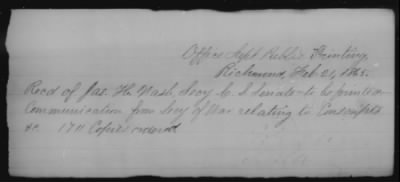 Office Supt Public Printing,
Richmond, Feb 21, 1865.
Recd of Jas. H. Nash, Secy C. S. Senate to be printed
Communication from Secy of War relating to Conscripts
&c. 1711 Copies ordered